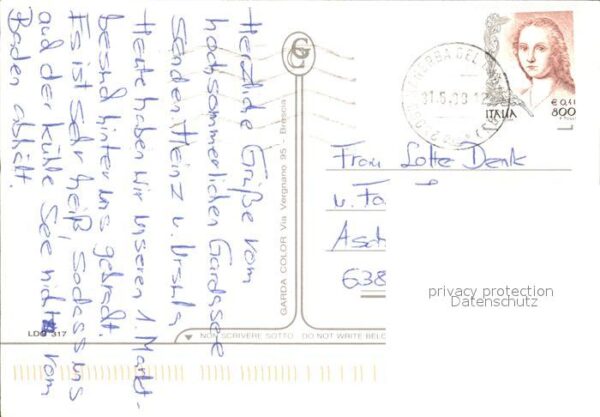 Herzliche Grüße vom
hochsommerlichen Gardasee
senden Heinz u. Ursula
Heute haben wir unseren 1. Markt-
besuch hinter uns gebracht.
Es ist sehr heiß sodass uns
auch der kühle See nicht vom
Baden abhält.
LDG 317
GARDA COLOR Via Vergnano 95 - Brescia
NON SCRIVERE SOTTO DO NOT WRITE BELO
ITALIA
€ 0,41
800
Frau Lotte Denk
u. Fa
Asch
638
privacy protection
Datenschutz